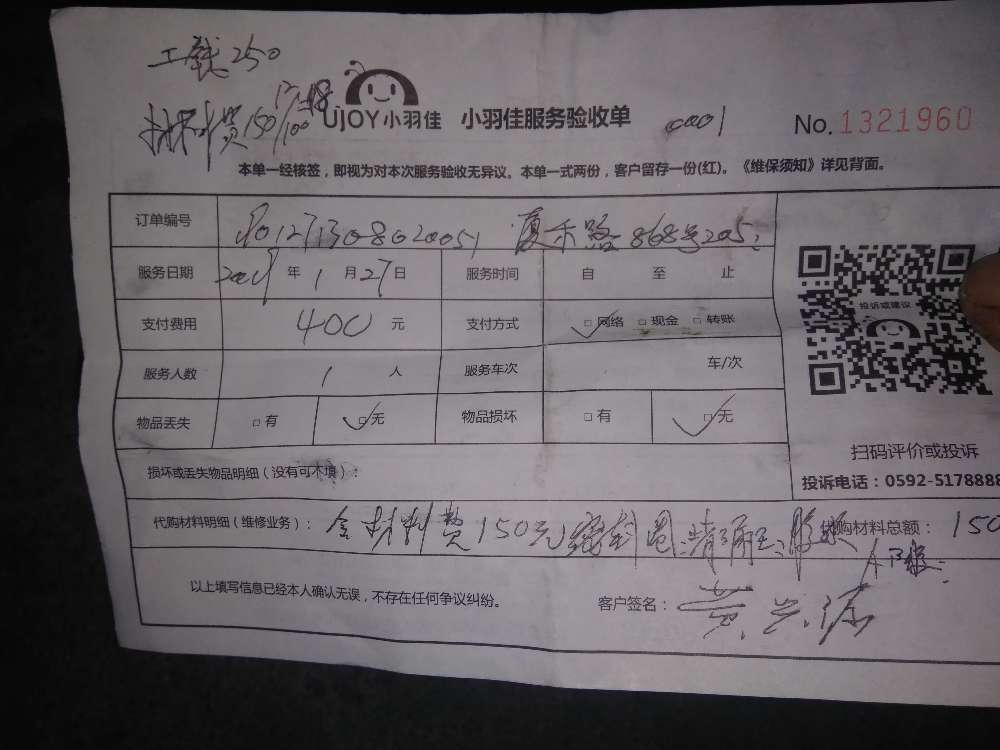 工钱250
材料费150/100
UJOY小羽佳 小羽佳服务验收单 0001 No.1321960
本单一经核签，即视为对本次服务验收无异议。本单一式两份，客户留存一份(红)。《维保须知》详见背面。
订单编号 868号205
服务日期 年 1 月 27 日 服务时间 自 至 止
支付费用 400 元 支付方式 □网络 □现金 □转账
服务人数 1 人 服务车次 车/次
物品丢失 □有 □无 物品损坏 □有 □无
投诉或建议
扫码评价或投诉
投诉电话：0592-5178888
损坏或丢失物品明细（没有可不填）：
代购材料明细（维修业务）： 含材料费150元密封圈 代购材料总额： 150
以上填写信息已经本人确认无误，不存在任何争议纠纷。 客户签名： 黄